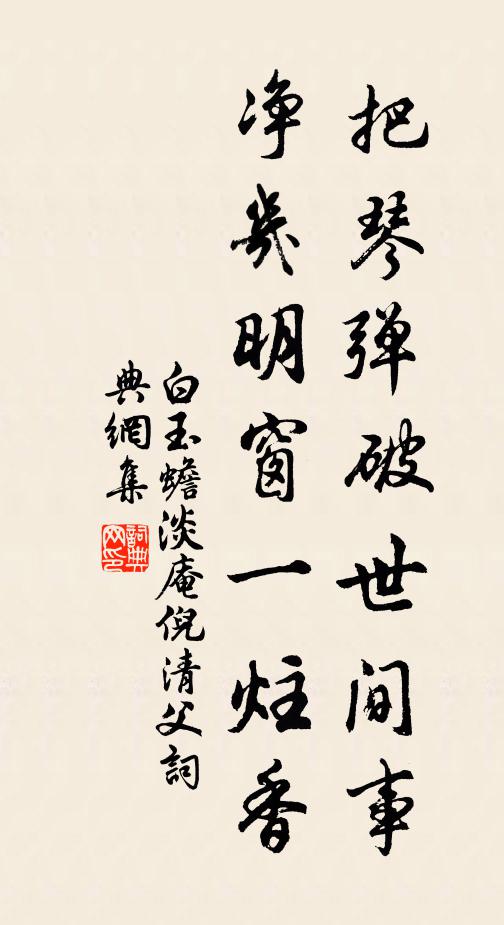 把琴弹破世间事
净几明窗一炷香
白玉蟾淡庵倪清父詞
典網集
詞典網印